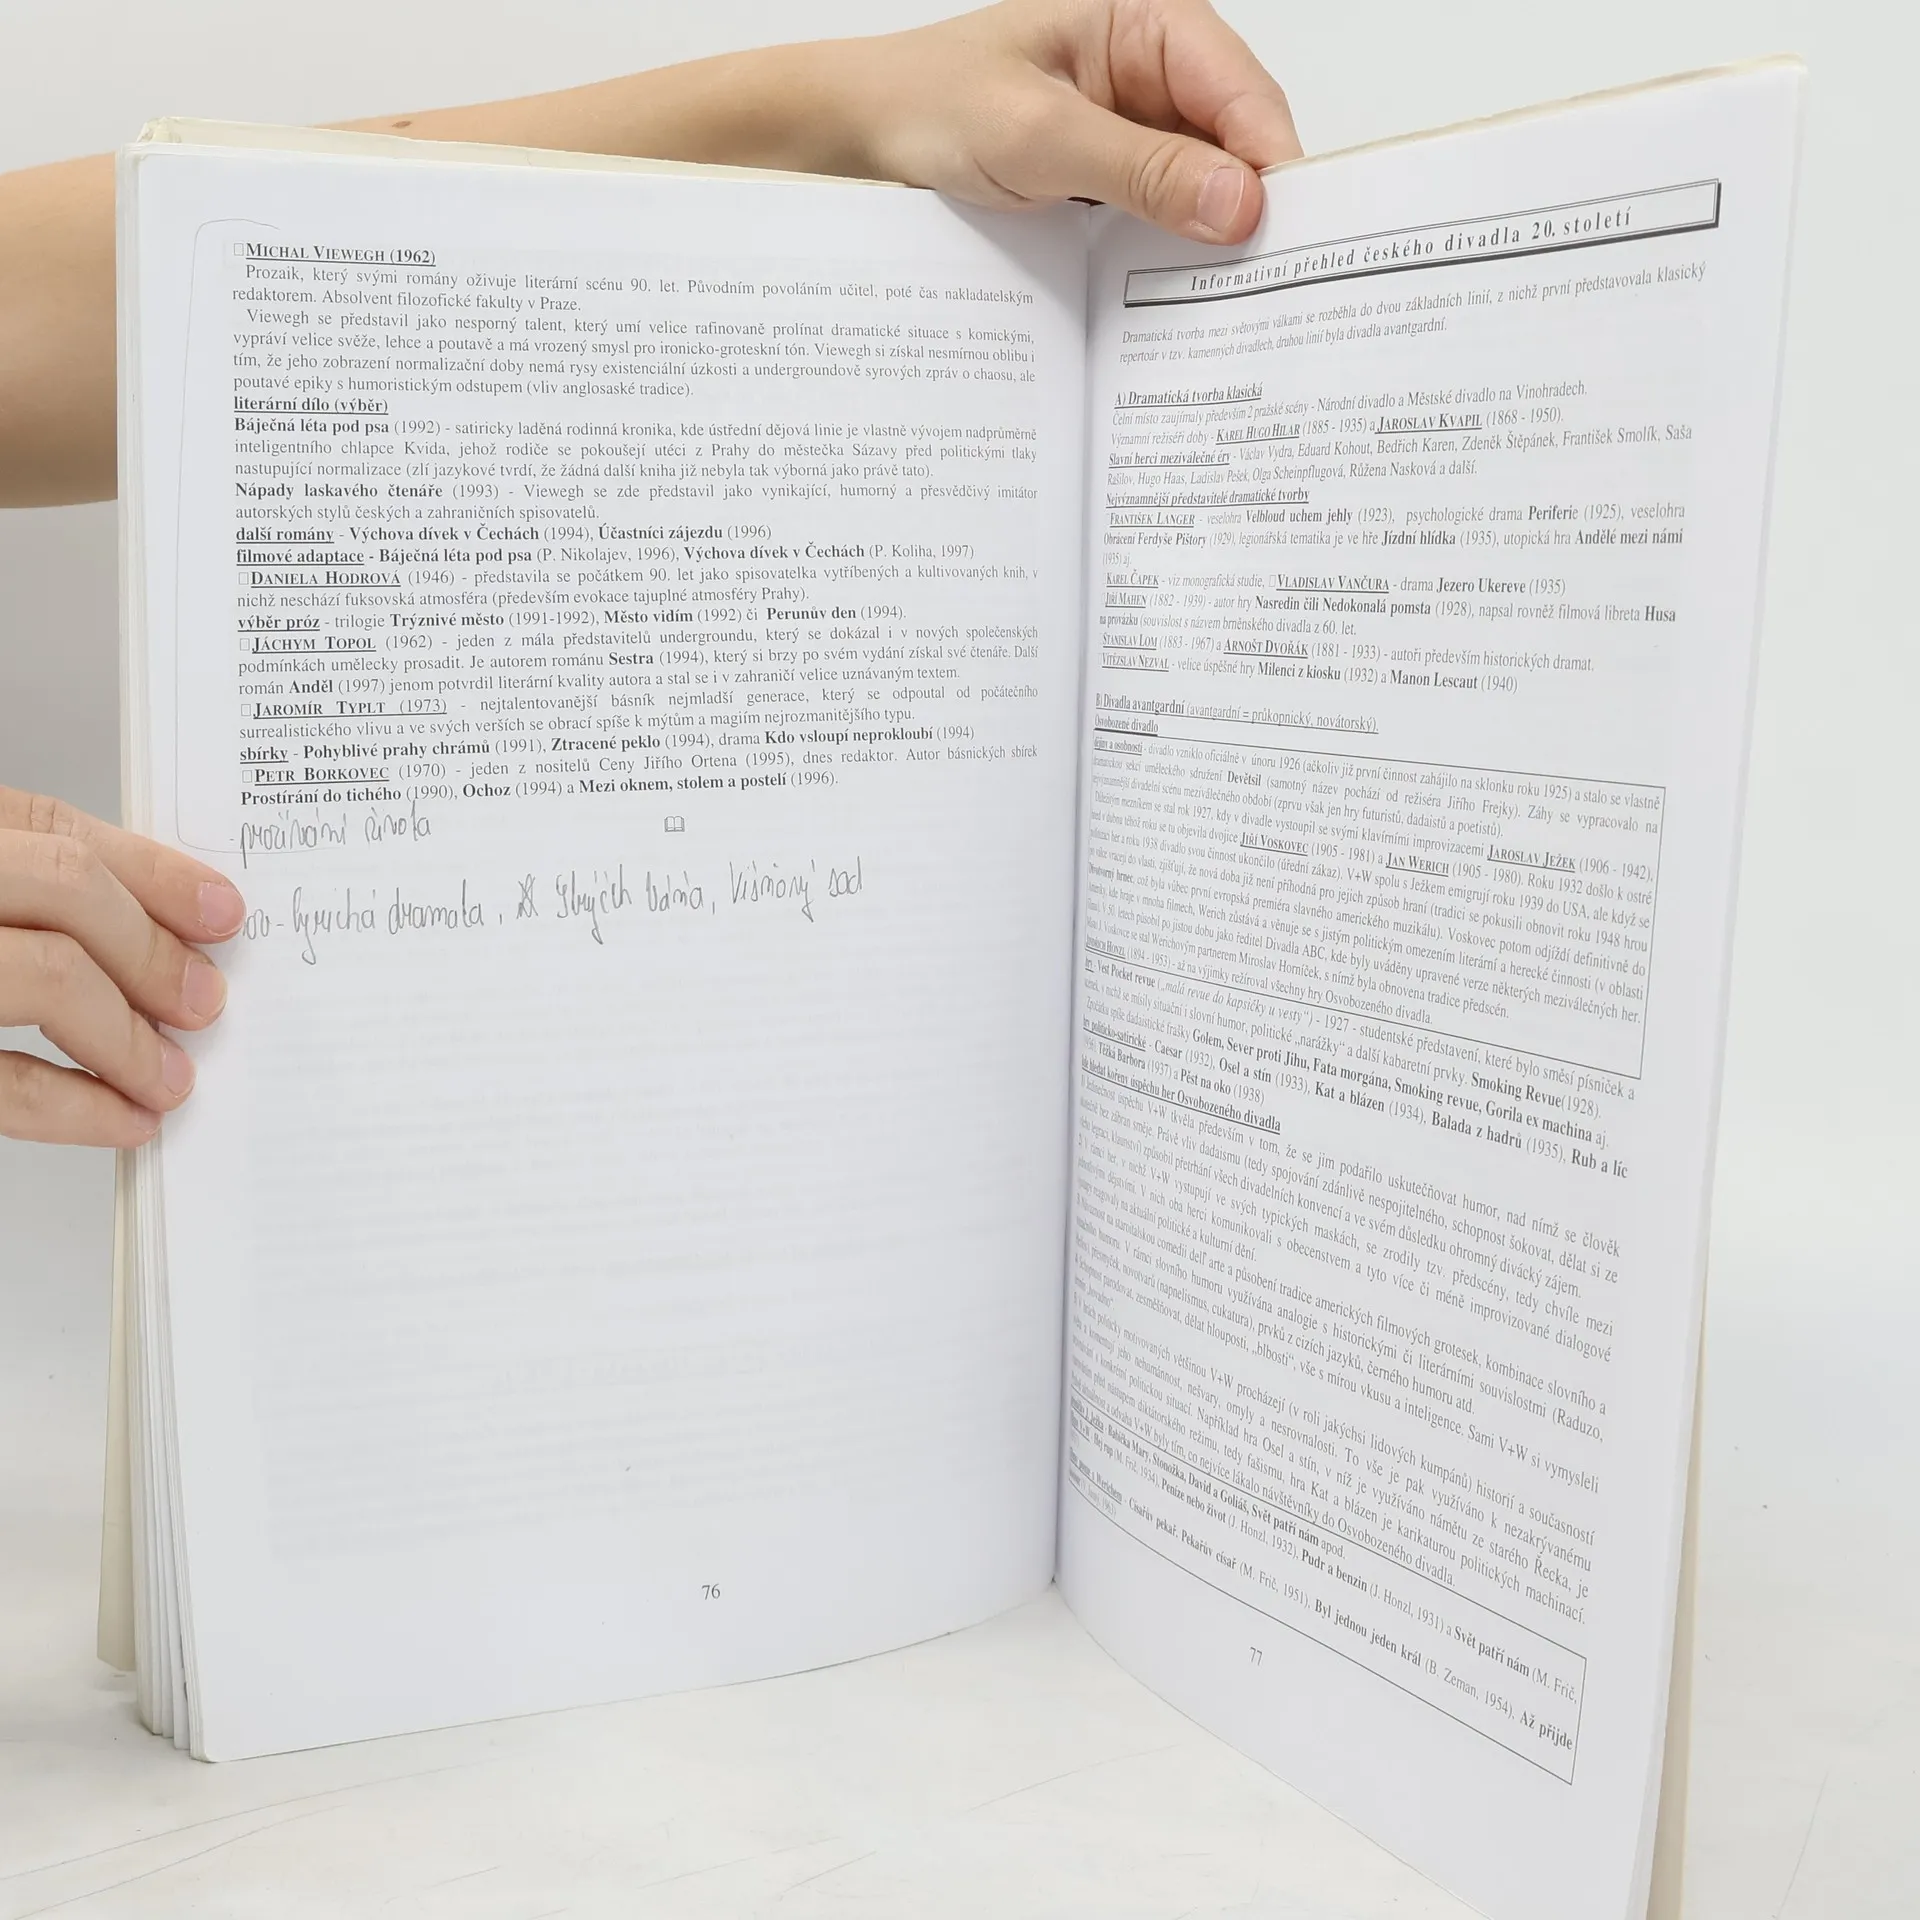 MICHAL VIEWEGH (1962)
Prozaik, který svými romány oživuje literární scénu 90. let. Původním povoláním učitel, poté čas nakladatelským
redaktorem. Absolvent filozofické fakulty v Praze.
Viewegh se představil jako nesporný talent, který umí velice rafinovaně prolínat dramatické situace s komickými,
vypráví velice svěže, lehce a poutavě a má vrozený smysl pro ironicko-groteskní tón. Viewegh si získal nesmírnou oblibu i
tím, že jeho zobrazení normalizační doby nemá rysy existenciální úzkosti a undergroundově syrových zpráv o chaosu, ale
poutavé epiky s humoristickým odstupem (vliv anglosaské tradice).
literární dílo (výběr)
Báječná léta pod psa (1992) - satiricky laděná rodinná kronika, kde ústřední dějová linie je vlastně vývojem nadprůměrně
inteligentního chlapce Kvida, jehož rodiče se pokoušejí utéci z Prahy do městečka Sázavy před politickými tlaky
nastupující normalizace (zlí jazykové tvrdí, že žádná další kniha již nebyla tak výborná jako právě tato).
Nápady laskavého čtenáře (1993) - Viewegh se zde představil jako vynikající, humorný a přesvědčivý imitátor
autorských stylů českých a zahraničních spisovatelů.
další romány - Výchova dívek v Čechách (1994), Účastníci zájezdu (1996)
filmové adaptace - Báječná léta pod psa (P. Nikolajev, 1996), Výchova dívek v Čechách (P. Koliha, 1997)
DANIELA HODROVÁ (1946) - představila se počátkem 90. let jako spisovatelka vytříbených a kultivovaných knih, v
nichž neschází fuksovská atmosféra (především evokace tajuplné atmosféry Prahy).
výběr próz - trilogie Trýznivé město (1991-1992), Město vidím (1992) či Perunův den (1994).
JÁCHYM TOPOL (1962) - jeden z mála představitelů undergroundu, který se dokázal i v nových společenských
podmínkách umělecky prosadit. Je autorem románu Sestra (1994), který si brzy po svém vydání získal své čtenáře. Další
román Anděl (1997) jenom potvrdil literární kvality autora a stal se i v zahraničí velice uznávaným textem.
JAROMÍR TYPLT (1973) - nejtalentovanější básník nejmladší generace, který se odpoutal od počátečního
surrealistického vlivu a ve svých verších se obrací spíše k mýtům a magiím nejrozmanitějšího typu.
sbírky - Pohyblivé prahy chrámů (1991), Ztracené peklo (1994), drama Kdo vsloupí neprokloubí (1994)
PETR BORKOVEC (1970) - jeden z nositelů Ceny Jiřího Ortena (1995), dnes redaktor. Autor básnických sbírek
Prostírání do tichého (1990), Ochoz (1994) a Mezi oknem, stolem a postelí (1996).
- prožívání života
- lyrická dramata, Strýček Váňa, Višňový sad
76
Informativní přehled českého divadla 20. století
Dramatická tvorba mezi světovými válkami se rozběhla do dvou základních linií, z nichž první představovala klasický
repertoár v tzv. kamenných divadlech, druhou linií byla divadla avantgardní.
A) Dramatická tvorba klasická
Čelní místo zaujímaly především 2 pražské scény - Národní divadlo a Městské divadlo na Vinohradech.
Významní režiséři doby - KAREL HUGO HILAR (1885 - 1935) a JAROSLAV KVAPIL (1868 - 1950).
Slavní herci meziválečné éry - Václav Vydra, Eduard Kohout, Bedřich Karen, Zdeněk Štěpánek, František Smolík, Saša
Rašilov, Hugo Haas, Ladislav Pešek, Olga Scheinpflugová, Růžena Nasková a další.
Nejvýznamnější představitelé dramatické tvorby
FRANTIŠEK LANGER - veselohra Velbloud uchem jehly (1923), psychologické drama Periferie (1925), veselohra
Obrácení Ferdyše Pištory (1929), legionářská tematika je ve hře Jízdní hlídka (1935), utopická hra Andělé mezi námi
(1935) aj.
KAREL ČAPEK - viz monografická studie, VLADISLAV VANČURA - drama Jezero Ukereve (1935)
JIŘÍ MAHEN (1882 - 1939) - autor hry Nasredin čili Nedokonalá pomsta (1928), napsal rovněž filmová libreta Husa
na provázku (souvislost s názvem brněnského divadla z 60. let.
STANISLAV LOM (1883 - 1967) a ARNOŠT DVOŘÁK (1881 - 1933) - autoři především historických dramat.
VÍTĚZSLAV NEZVAL - velice úspěšné hry Milenci z kiosku (1932) a Manon Lescaut (1940)
B) Divadla avantgardní (avantgardní = průkopnický, novátorský).
Osvobozené divadlo
dějiny a osobnosti - divadlo vzniklo oficiálně v únoru 1926 (ačkoliv již první činnost zahájilo na sklonku roku 1925) a stalo se vlastně
dramatickou sekcí uměleckého sdružení Devětsil (samotný název pochází od režiséra Jiřího Frejky). Záhy se vypracovalo na
nejvýznamnější divadelní scénu meziválečného období (zprvu však jen hry futuristů, dadaistů a poetistů).
Důležitým mezníkem se stal rok 1927, kdy v divadle vystoupil se svými klavírními improvizacemi JAROSLAV JEŽEK (1906 - 1942),
hned v dubnu téhož roku se tu objevila dvojice JIŘÍ VOSKOVEC (1905 - 1981) a JAN WERICH (1905 - 1980). Roku 1932 došlo k ostré
her a roku 1938 divadlo svou činnost ukončilo (úřední zákaz). V+W spolu s Ježkem emigrují roku 1939 do USA, ale když se
po válce vracejí do vlasti, zjišťují, že nová doba již není příhodná pro jejich způsob hraní (tradici se pokusili obnovit roku 1948 hrou
Divotvorný hrnec, což byla vůbec první evropská premiéra slavného amerického muzikálu). Voskovec potom odjíždí definitivně do
kde hraje v mnoha filmech, Werich zůstává a věnuje se s jistým politickým omezením literární a herecké činnosti (v oblasti
V 50. letech působil po jistou dobu jako ředitel Divadla ABC, kde byly uváděny upravené verze některých meziválečných her.
Místo J. Voskovce se stal Werichovým partnerem Miroslav Horníček, s nímž byla obnovena tradice předscén.
JINDŘICH HONZL (1894 - 1953) - až na výjimky režíroval všechny hry Osvobozeného divadla.
hry - Vest Pocket revue („malá revue do kapsičky u vesty“) - 1927 - studentské představení, které bylo směsí písniček a
scének, v nichž se mísily situační i slovní humor, politické „narážky“ a další kabaretní prvky. Smoking Revue(1928).
Zpočátku spíše dadaistické frašky Golem, Sever proti Jihu, Fata morgána, Smoking revue, Gorila ex machina aj.
hry politicko-satirické - Caesar (1932), Osel a stín (1933), Kat a blázen (1934), Balada z hadrů (1935), Rub a líc
(1936) Těžká Barbora (1937) a Pěst na oko (1938)
kde hledat kořeny úspěchu her Osvobozeného divadla
1) Jedinečnost úspěchu V+W tkvěla především v tom, že se jim podařilo uskutečňovat humor, nad nímž se člověk
skutečně bez zábran směje. Právě vliv dadaismu (tedy spojování zdánlivě nespojitelného, schopnost šokovat, dělat si ze
všeho legraci, klaunství) způsobil přetrhání všech divadelních konvencí a ve svém důsledku ohromný divácký zájem.
2) V rámci her, v nichž V+W vystupují ve svých typických maskách, se zrodily tzv. předscény, tedy chvíle mezi
jednotlivými dějstvími. V nich oba herci komunikovali s obecenstvem a tyto více či méně improvizované dialogové
výstupy reagovaly na aktuální politické a kulturní dění.
na staroitalskou comedii dell' arte a působení tradice amerických filmových grotesek, kombinace slovního a
situačního humoru. V rámci slovního humoru využívána analogie s historickými či literárními souvislostmi (Raduzo,
přesmyček, novotvarů (napnelismus, cukatura), prvků z cizích jazyků, černého humoru atd.
4) Schopnost parodovat, zesměšňovat, dělat hlouposti, „blbosti“, vše s mírou vkusu a inteligence. Sami V+W si vymysleli
5) V hrách politicky motivovaných většinou V+W procházejí (v roli jakýchsi lidových kumpánů) historií a současností
a komentují jeho nehumánnost, nešvary, omyly a nesrovnalosti. To vše je pak využíváno k nezakrývanému
s konkrétní politickou situací. Například hra Osel a stín, v níž je využíváno námětu ze starého Řecka, je
před nástupem diktátorského režimu, tedy fašismu, hra Kat a blázen je karikaturou politických machinací.
a odvaha V+W byly tím, co nejvíce lákalo návštěvníky do Osvobozeného divadla.
J. Ježka - Babička Mary, Stonožka, David a Goliáš, Svět patří nám apod.
V+W - Hej rup (M. Frič, 1934), Peníze nebo život (J. Honzl, 1932), Pudr a benzin (J. Honzl, 1931) a Svět patří nám (M. Frič,
s Werichem - Císařův pekař, Pekařův císař (M. Frič, 1951), Byl jednou jeden král (B. Zeman, 1954), Až přijde
77